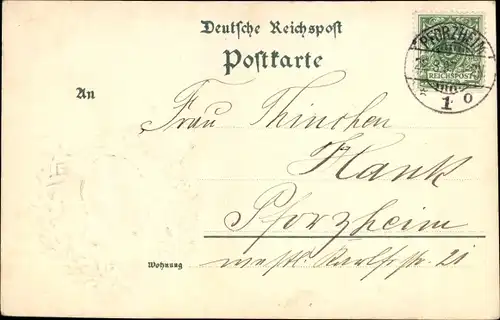 Deutsche Reichspost
Postkarte
PFORZHEIM
REICHSPOST
1 o
An
Frau Thinchen
Hank
Pforzheim
Wohnung westl. Karlfstr. 21